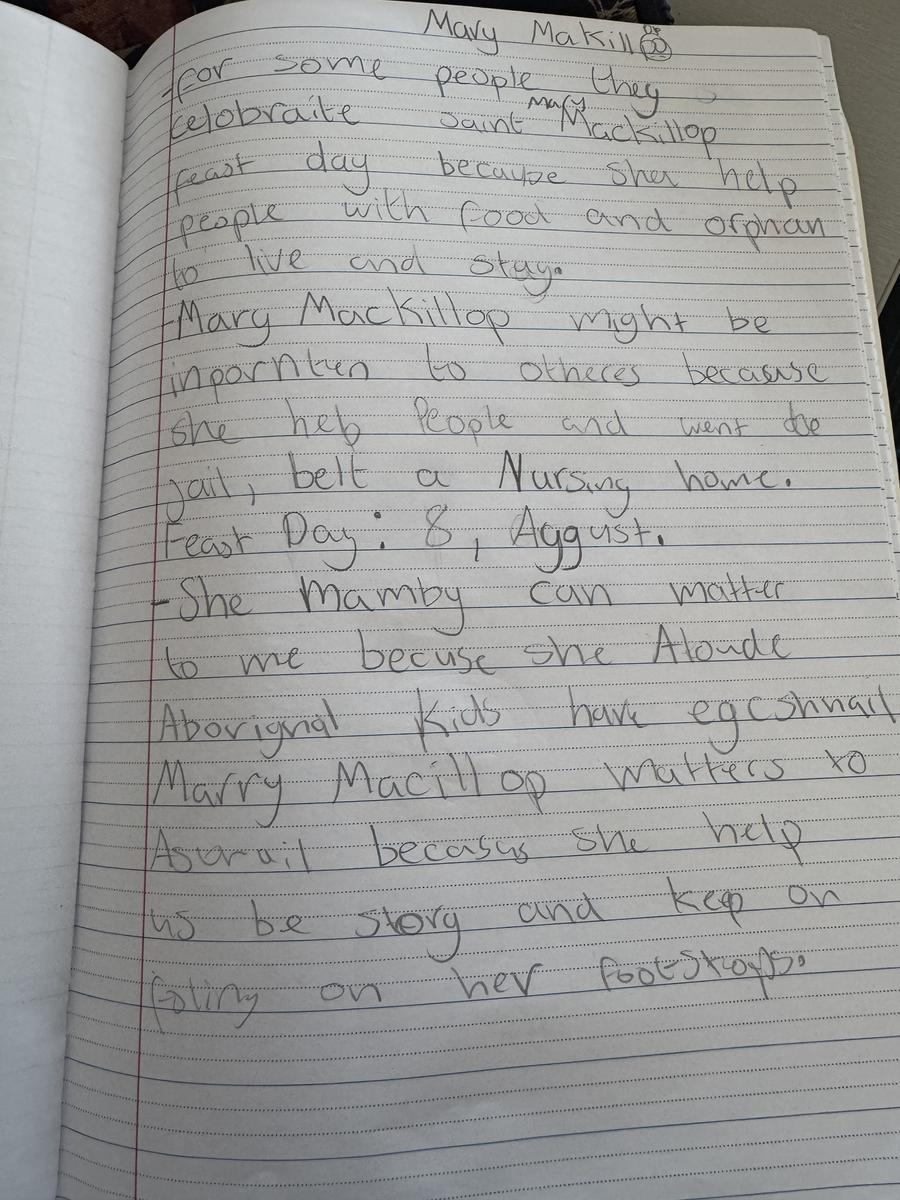 Mary Makill
-for some people they
celobraite saint Mary Mackillop
feast day because sher help
people with food and orphan
to live and stay.
-Mary Mackillop might be
inporntien to otheres becasuse
she help People and went to
jail, belt a Nursing home.
Feast Day: 8, Aggust.
-She Mamby can matter
to me becuse she Aloude
Aborignal kids have egcshnail
Marry Macillop matters to
Asurail becasus she help
us be story and keep on
foling on her footstops.